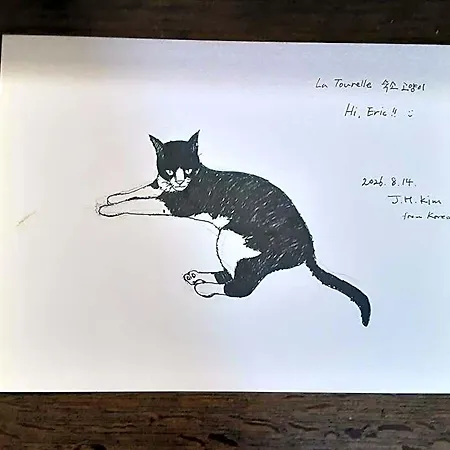 La Tourelle 숙소 고양이
Hi, Eric!! :)
2026. 8. 14.
J.H. Kim
from Korea